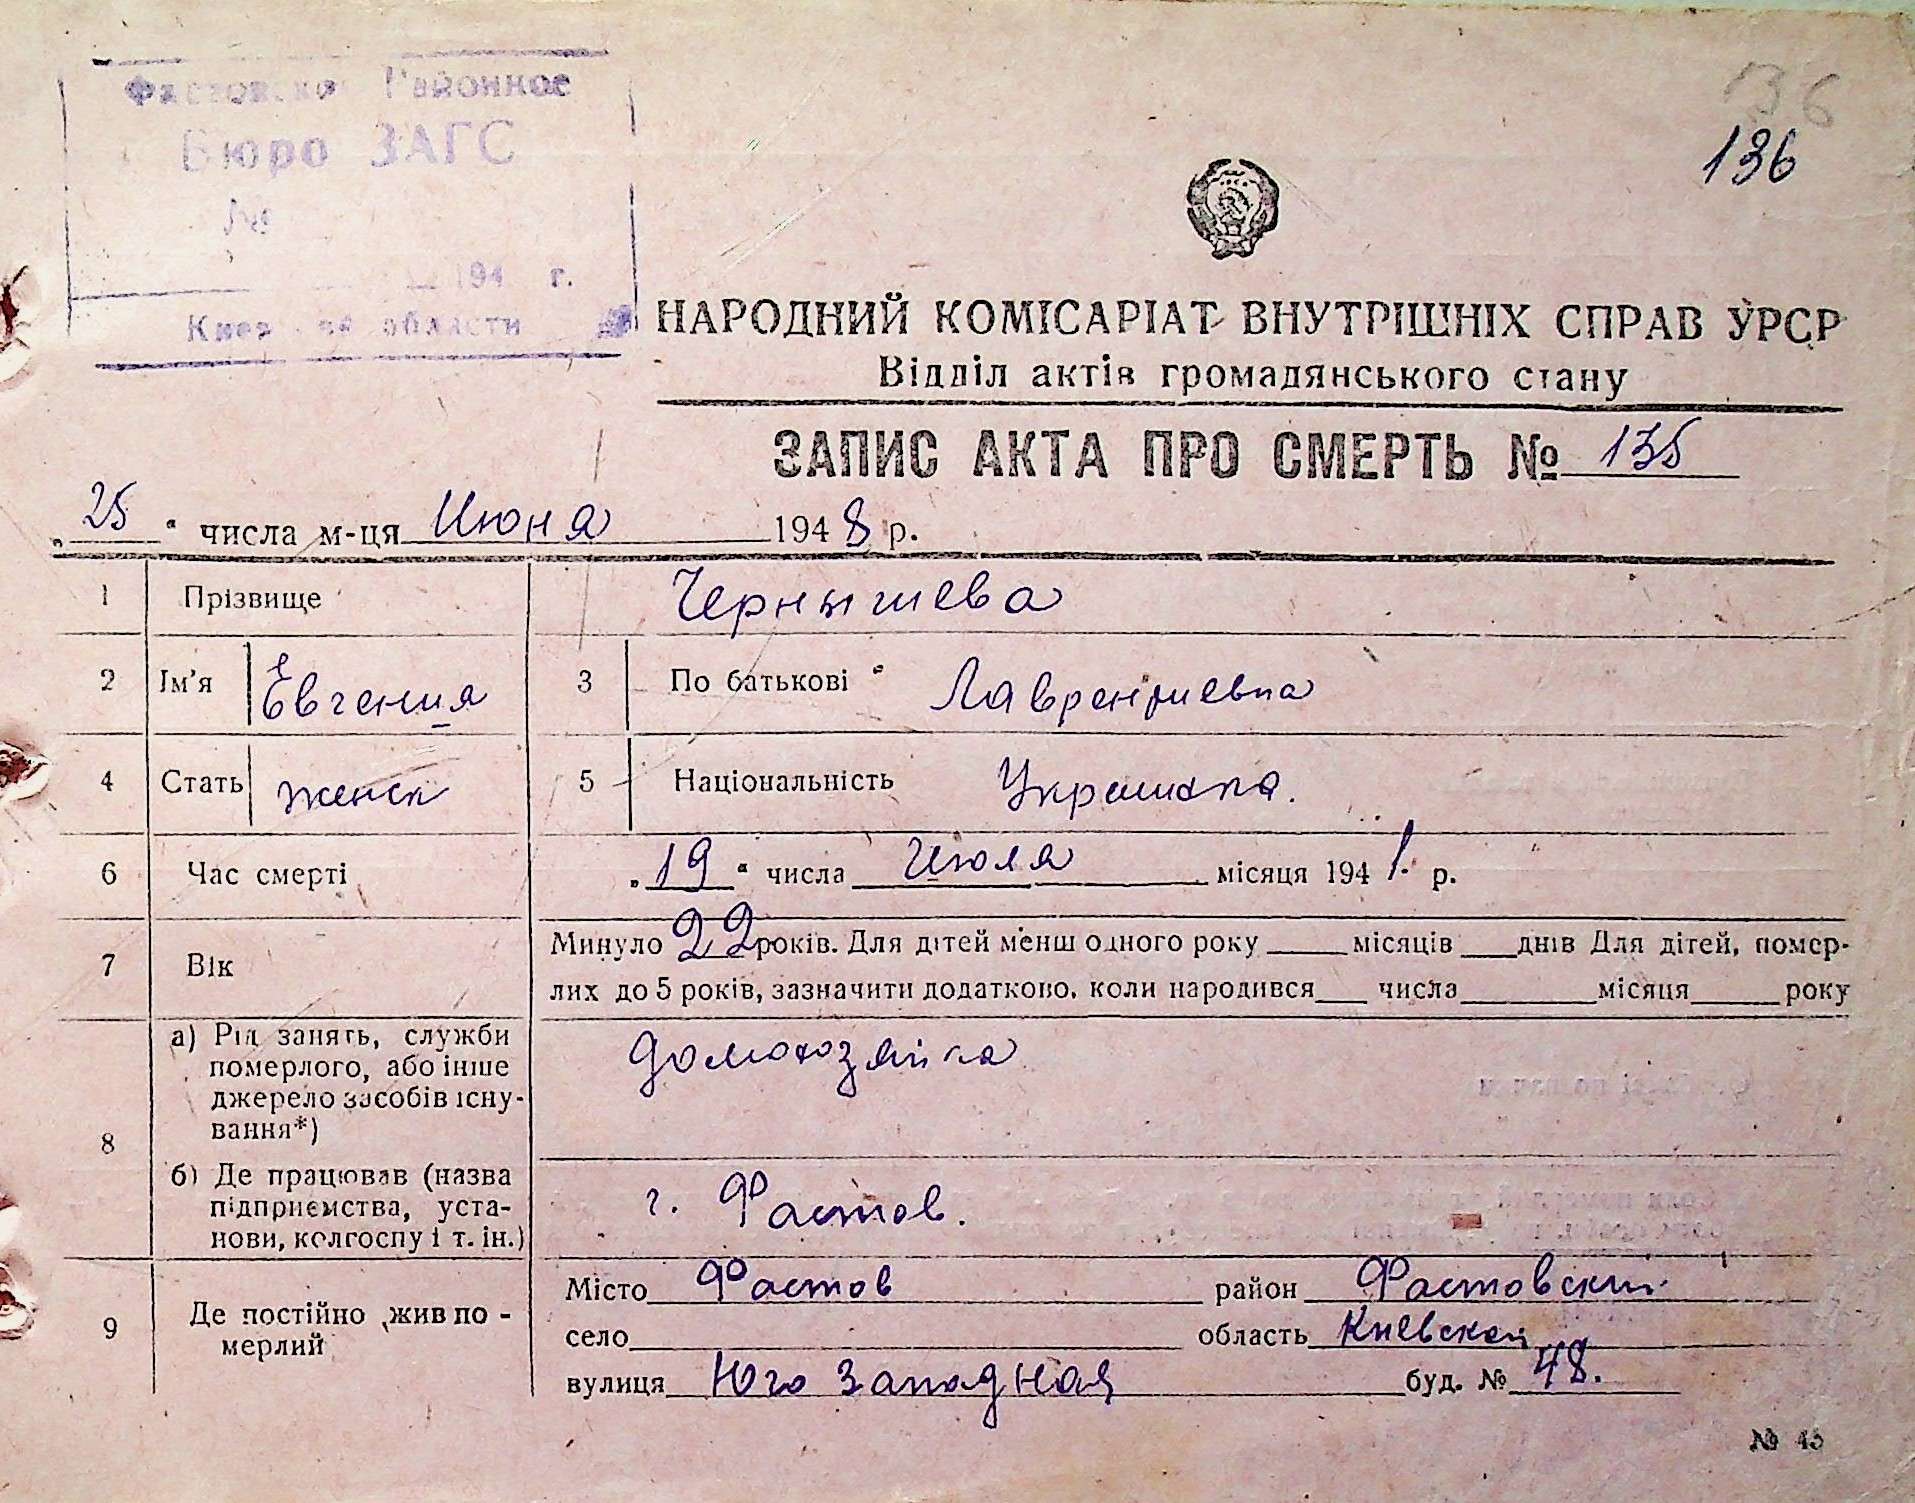 Фастовское Районное
Бюро ЗАГС
№
194 г.
Киевской области
136
136
НАРОДНИЙ КОМІСАРІАТ ВНУТРІШНІХ СПРАВ УРСР
Відділ актів громадянського стану
ЗАПИС АКТА ПРО СМЕРТЬ № 135
„25“ числа м-ця Июня 1948 р.
1 Прізвище Чернышева
2 Ім'я Евгения 3 По батькові Лаврентиевна
4 Стать женск 5 Національність Украинка.
6 Час смерті „19“ числа Июля місяця 1941. р.
7 Вік Минуло 22 років. Для дітей менш одного року ___ місяців ___ днів Для дітей, помер-
лих до 5 років, зазначити додатково, коли народився ___ числа ___ місяця ___ року
8 а) Рід занять, служби
померлого, або інше
джерело засобів існу-
вання*)
домохозяйка
б) Де працював (назва
підприємства, уста-
нови, колгоспу і т. ін.)
г. Фастов.
9 Де постійно жив по-
мерлий
Місто Фастов район Фастовский
село область Киевской
вулиця Юго Западная буд. № 48.
№ 45